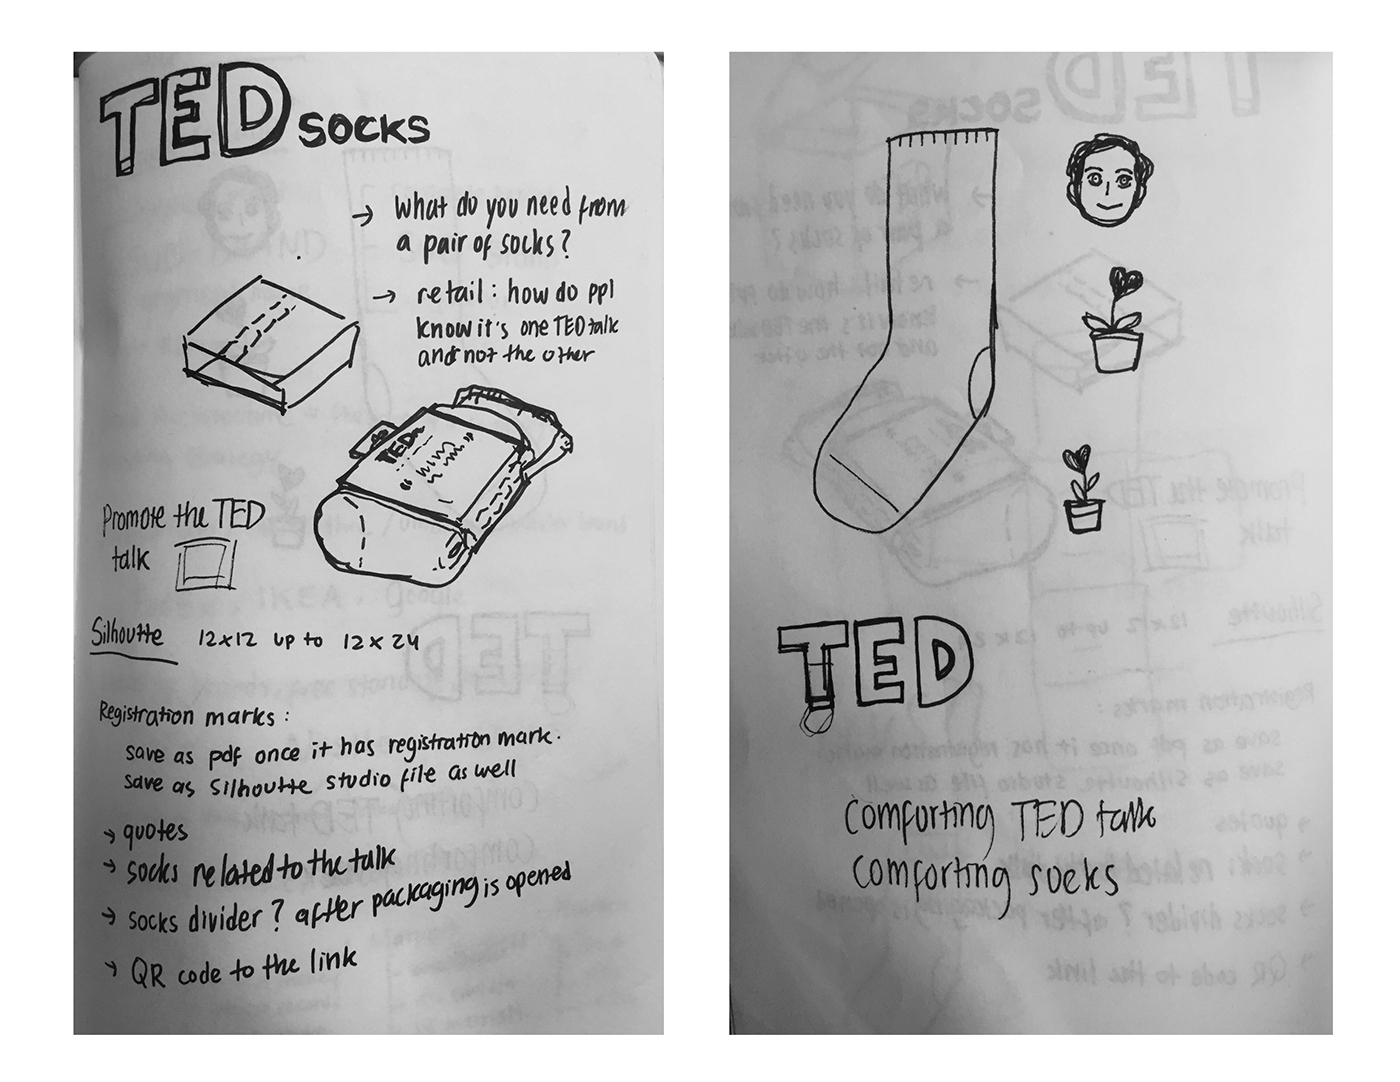 TED SOCKS
→ What do you need from
a pair of socks?
→ retail: how do ppl
know it's one TED talk
and not the other
TED
Promote the TED
talk
Silhoutte 12x12 up to 12x24
Registration marks:
save as pdf once it has registration mark.
save as Silhoutte studio file as well
→ quotes
→ socks related to the talk
→ socks divider? after packaging is opened
→ QR code to the link
TED
Comforting TED talk
comforting socks